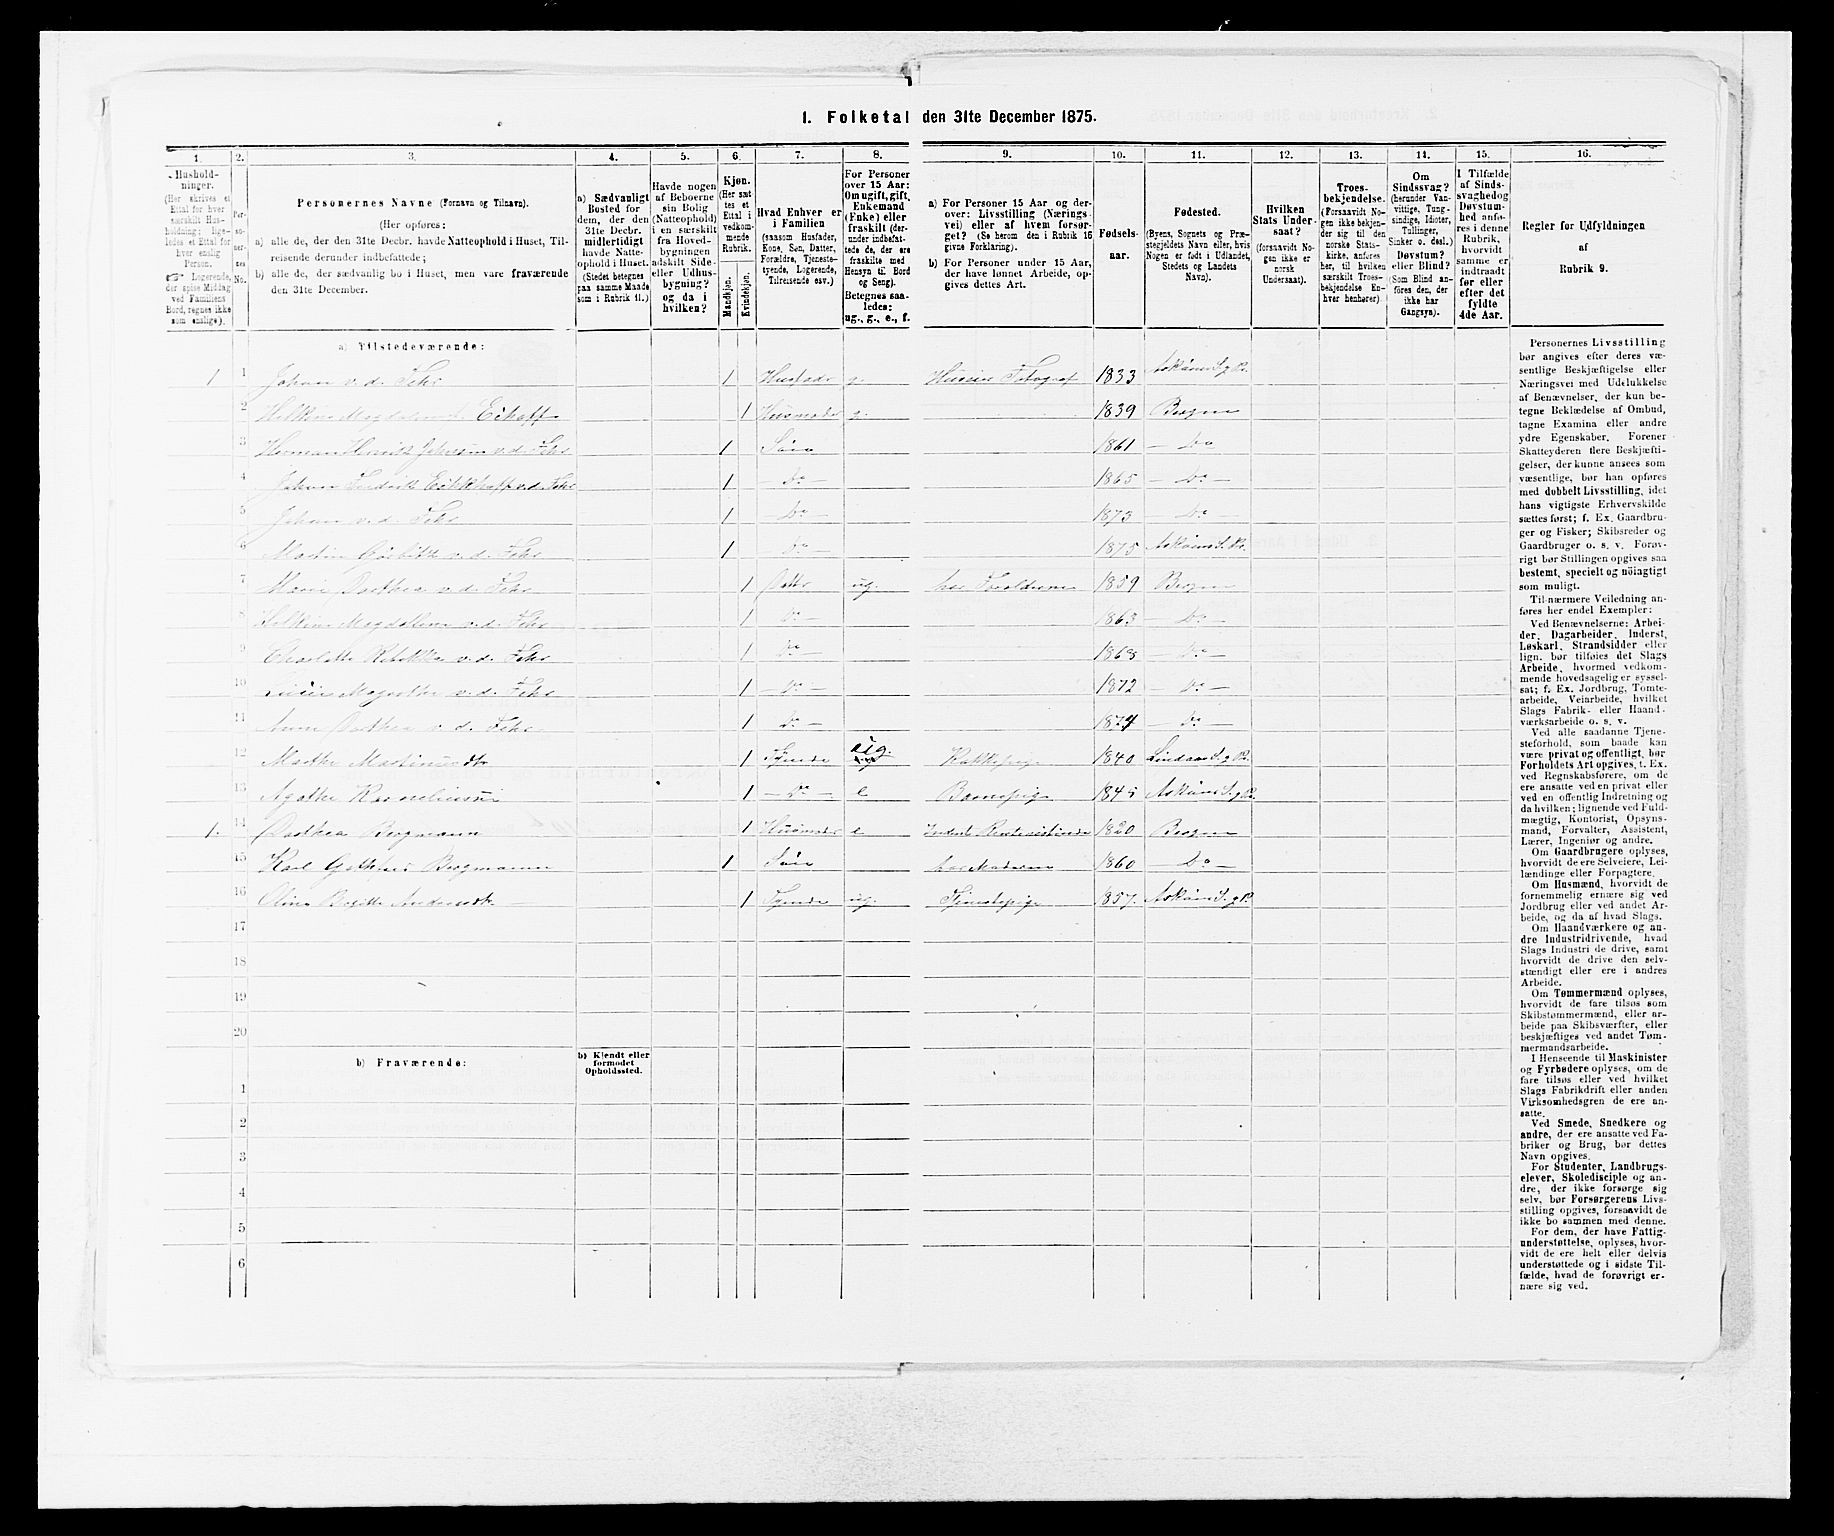 1. Folketal den 31te December 1875.
1. 2. 3. 4. 5. 6. 7. 8. 9. 10. 11. 12. 13. 14. 15. 16.
Hushold-
ninger.
(Her skrives et
Ettal for hver
særskilt Hus-
holdning; lige-
ledes et Ettal for
hver enslig
Person.
☞ Logerende,
der spise Middag
ved Familiens
Bord, regnes ikke
som enslige).
Per-
so-
ner-
nes
No.
Personernes Navne (Fornavn og Tilnavn).
(Her opføres:
a) alle de, der den 31te Decbr. havde Natteophold i Huset, Til-
reisende derunder indbefattede;
b) alle de, der sædvanlig bo i Huset, men vare fraværende
den 31te December.
a) Sædvanligt
Bosted for
dem, der den
31te Decbr.
midlertidigt
havde Natte-
ophold i Huset.
(Stedet betegnes
paa samme Maade
som i Rubrik 11.)
Havde nogen
af Beboerne
sin Bolig
(Natteophold)
i en særskilt
fra Hoved-
bygningen
adskilt Side-
eller Udhus-
bygning?
og da i
hvilken?
Kjøn.
(Her sæt-
tes et
Ettal i
vedkom-
mende
Rubrik.
Mandkjøn.
Kvindekjøn.
Hvad Enhver er
i Familien
(saasom Husfader,
Kone, Søn, Datter,
Forældre, Tjeneste-
tyende, Logerende,
Tilreisende osv.)
For Personer
over 15 Aar:
Om ugift, gift,
Enkemand
(Enke) eller
fraskilt (der-
under indbefat-
tede de, der ere
fraskilte med
Hensyn til Bord
og Seng).
Betegnes saa-
ledes:
ug., g., e., f.
a) For Personer 15 Aar og der-
over: Livsstilling (Nærings-
vei) eller af hvem forsør-
get? (Se herom den i Rubrik 16
givne Forklaring).
b) For Personer under 15 Aar,
der have lønnet Arbeide, op-
gives dettes Art.
Fødsels-
aar.
Fødested.
(Byens, Sognets og Præ-
stegjeldets Navn eller, hvis
Nogen er født i Udlandet,
Stedets og Landets
Navn).
Hvilken
Stats Under-
saat?
(forsaavidt No-
gen ikke er
norsk
Undersaat).
Troes-
bekjendelse.
(Forsaavidt No-
gen ikke bekjen-
der sig til den
norske Stats-
kirke, anføres
her, til hvilken
særskilt Troes-
bekjendelse En-
hver henhører).
Om
Sindssvag?
(herunder Van-
vittige, Tung-
sindige, Idioter,
Tullinger,
Sinker o. desl.)
Døvstum?
eller Blind?
(Som Blind an-
føres den, der
ikke har
Gangsyn).
I Tilfælde
af Sinds-
svaghed og
Døvstum-
hed anfø-
res i denne
Rubrik,
hvorvidt
samme er
indtraadt
før eller
efter det
fyldte
4de Aar.
Regler for Udfyldningen
af
Rubrik 9.
a) Tilstedeværende:
1 1 Johan v. d. Fehr 1 Husfadr g. Fotograf 1833 Askøens S. g Pr.
2 Magdalene Eikhaff 1 Husmodr g. 1839 Bergen
3 Herman Johnsen v. d. Fehr 1 Søn 1861 – Do
4 Johan Fredrik Eikhaff v. d. Fehr 1 – Do – 1865 – Do –
5 Johan v. d. Fehr 1 – Do – 1873 – Do –
6 Martin Görbitz v. d. Fehr 1 – Do – 1875 Askøens S. Pr.
7 Marie Dorthea v. d. Fehr 1 Dattr ug. hos Forældrene 1859 Bergen
8 Magdalene v. d. Fehr 1 Do – 1863 – Do –
9 Charlotte Rebekka v. d. Fehr 1 Do – 1868 – Do –
10 Magrethe v. d. Fehr 1 – Do – 1872 – Do –
11 Anne Dorthea v. d. Fehr 1 Do – 1874 – Do –
12 Marthe Martinusdtr 1 Tjende ug. Kokkepige 1840 Lindaas S. g Pr.
13 Agathe Korneliussen 1 – Do – e Barnepige 1845 Askøens S. g Pr.
1. 14 Dorthea Bergmann 1 Husmodr e Rentenistinde 1820 Bergen
15 Karl Bergmann 1 Søn hos Moderen 1860 – Do –
16 Oline Birgitte Andersdtr 1 Tjende ug. Tjenestepige 1857. Askøens S. g Pr.
17
18
19
20
b) Fraværende:
b) Kjendt eller
formodet
Opholdssted.
1
2
3
4
5
6
Personernes Livsstilling
bør angives efter deres væ-
sentlige Beskjæftigelse eller
Næringsvei med Udelukkelse
af Benævnelser, der kun be-
tegne Beklædelse af Ombud,
tagne Examina eller andre
ydre Egenskaber. Forener
Skatteyderen flere Beskjæfti-
gelser, der kunne ansees som
væsentlige, bør han opføres
med dobbelt Livsstilling, idet
hans vigtigste Erhvervskilde
sættes først; f. Ex. Gaardbru-
ger og Fisker; Skibsreder og
Gaardbruger o. s. v. Forøv-
rigt bør Stillingen opgives saa
bestemt, specielt og nöiagtigt
som muligt.
Til nærmere Veiledning an-
føres her endel Exempler:
Ved Benævnelserne: Arbei-
der, Dagarbeider, Inderst,
Løskarl, Strandsidder eller
lign. bør tilføies det Slags
Arbeide, hvormed vedkom-
mende hovedsagelig er syssel-
sat; f. Ex. Jordbrug, Tomte-
arbeide, Veiarbeide, hvilket
Slags Fabrik- eller Haand-
værksarbeide o. s. v.
Ved alle saadanne Tjene-
steforhold, som baade kan
være privat og offentligt, bør
Forholdets Art opgives, t. Ex.
ved Regnskabsførere, om de
ere ansatte ved en privat eller
ved en offentlig Indretning og
da hvilken; lignende ved Fuld-
mægtig, Kontorist, Opsyns-
mand, Forvalter, Assistent,
Lærer, Ingeniør og andre.
Om Gaardbrugere oplyses,
hvorvidt de ere Selveiere, Lei-
lændinge eller Forpagtere.
Om Husmænd, hvorvidt de
fornemmelig ernære sig ved
Jordbrug eller ved andet Ar-
beide, og da af hvad Slags.
Om Haandværkere og an-
dre Industridrivende, hvad
Slags Industri de drive, samt
hvorvidt de drive den selv-
stændigt eller ere i andres
Arbeide.
Om Tømmermænd oplyses,
hvorvidt de fare tilsøs som
Skibstømmermænd, eller ar-
beide paa Skibsværfter, eller
beskjæftiges ved andet Tøm-
mermandsarbeide.
I Henseende til Maskinister
og Fyrbødere oplyses, om de
fare tilsøs eller ved hvilket
Slags Fabrikdrift eller anden
Virksomhedsgren de ere an-
satte.
Ved Smede, Snedkere og
andre, der ere ansatte ved Fa-
briker og Brug, bør dettes
Navn opgives.
For Studenter, Landbrugs-
elever, Skoledisciple og an-
dre, der ikke forsørge sig
selv, bør Forsørgerens Livs-
stilling opgives, forsaavidt de
ikke bo sammen med denne.
For dem, der have Fattig-
understøttelse, oplyses, hvor-
vidt de ere helt eller delvis
understøttede og i sidste Til-
fælde, hvad de forøvrigt er-
nære sig ved.